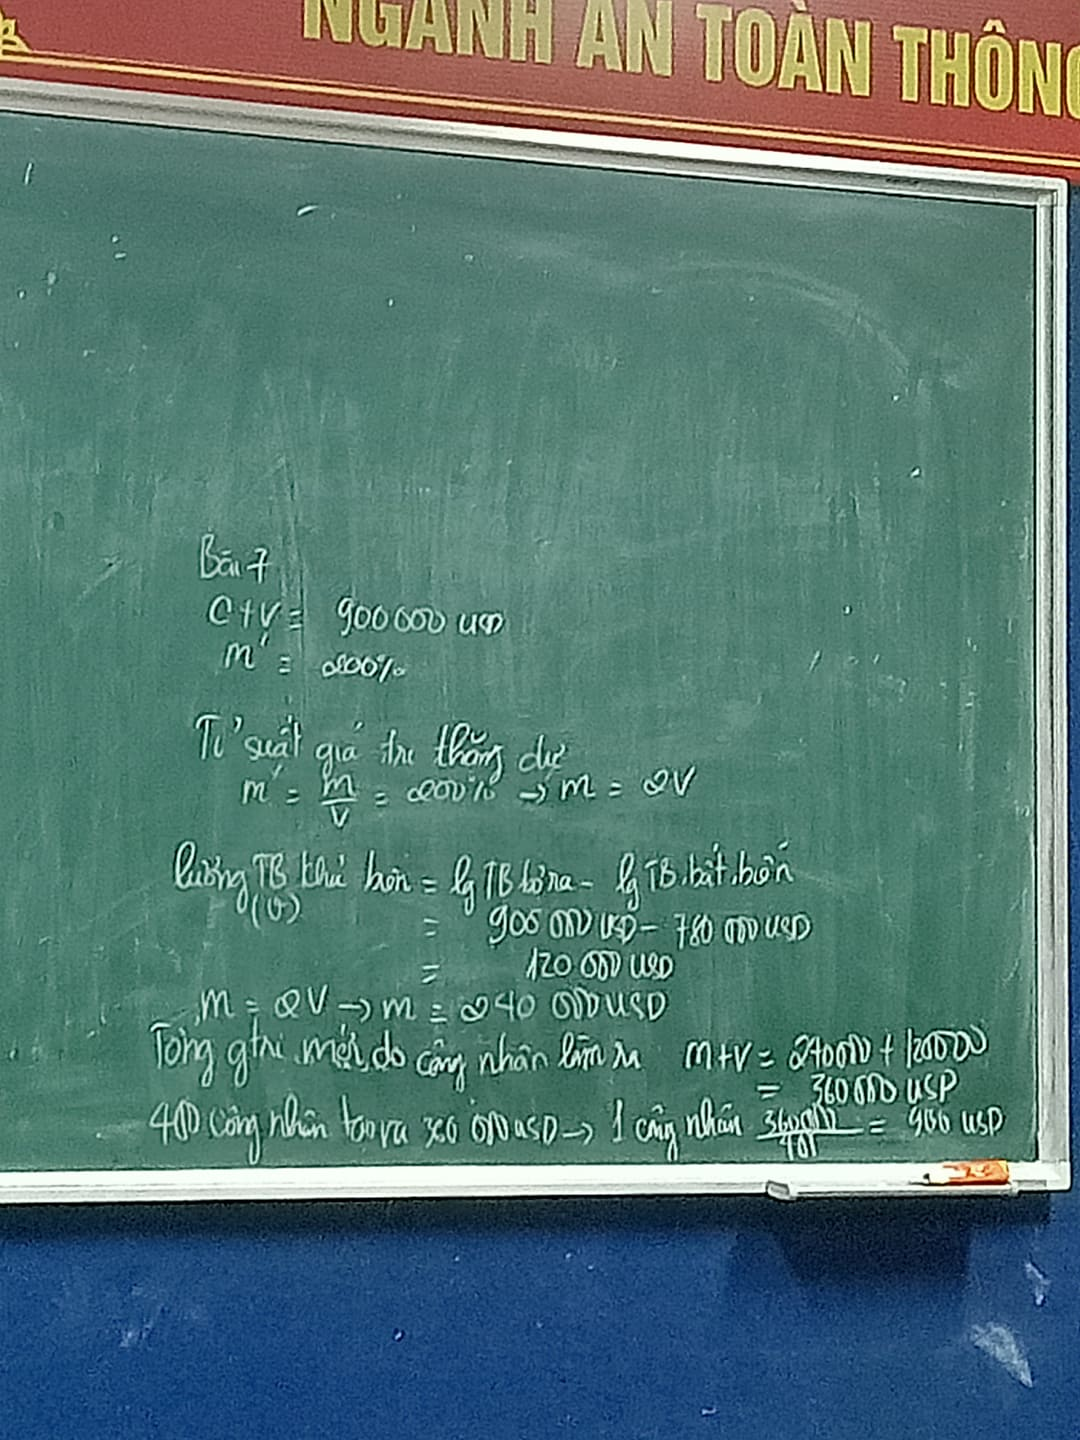 NGÀNH AN TOÀN THÔNG
Bài 7
C+V = 900000 USD
m' = 200%
Tỉ suất giá trị thặng dư
m' = m/V = 200% → m = 2V
lượng TB khả biến = lg TB bỏ ra - lg TB bất biến
(v)
= 900 000 USD - 780 000 USD
= 120 000 USD
m = 2V → m = 240 000 USD
Tổng gtrị mới do công nhân làm ra m+V = 240000 + 120000
= 360 000 USD
400 công nhân tạo ra 360 000 USD → 1 công nhân 360000/400 = 900 USD